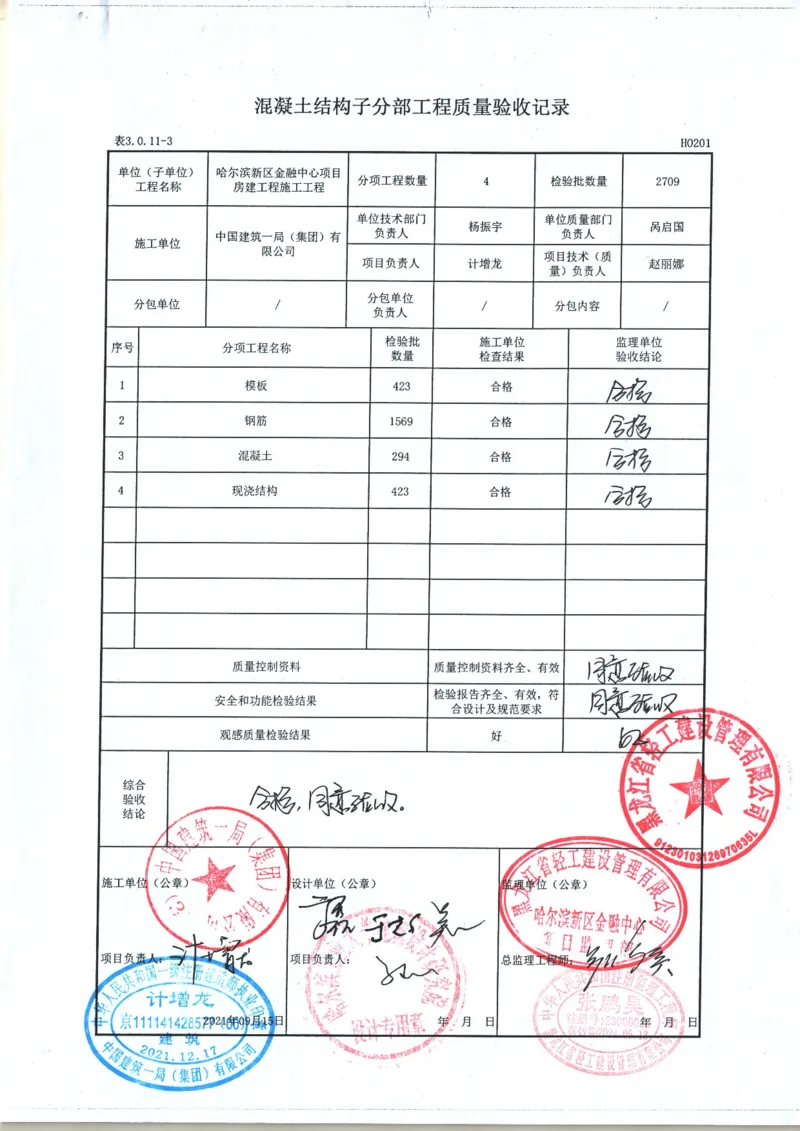 混凝土结构子分部工程质量验收记录
表3.0.11-3
H0201
单位（子单位）
工程名称
哈尔滨新区金融中心项目
房建工程施工工程
分项工程数量
4
检验批数量
2709
施工单位
中国建筑一局（集团）有
限公司
单位技术部门
负责人
杨振宇
单位质量部门
负责人
呙启国
项目负责人
计增龙
项目技术（质
量）负责人
赵丽娜
分包单位
/
分包单位
负责人
/
分包内容
/
序号
分项工程名称
检验批
数量
施工单位
检查结果
监理单位
验收结论
1
模板
423
合格
合格
2
钢筋
1569
合格
合格
3
混凝土
294
合格
合格
4
现浇结构
423
合格
合格
质量控制资料
质量控制资料齐全、有效
同意验收
安全和功能检验结果
检验报告齐全、有效，符
合设计及规范要求
同意验收
观感质量检验结果
好
综合
验收
结论
合格，同意验收。
黑龙江省轻工建设管理有限公司
施工单位（公章）
中国建筑一局（集团）有限公司
设计单位（公章）
监理单位（公章）
黑龙江省轻工建设管理有限公司
哈尔滨新区金融中心
项目负责人：
计增龙
项目负责人：
总监理工程师：
中华人民共和国一级注册建造师执业印章
计增龙
2021年09月15日
建筑
2021.12.17
中国建筑一局（集团）有限公司
设计专用章
年 月 日
张鹏昊
年 月 日